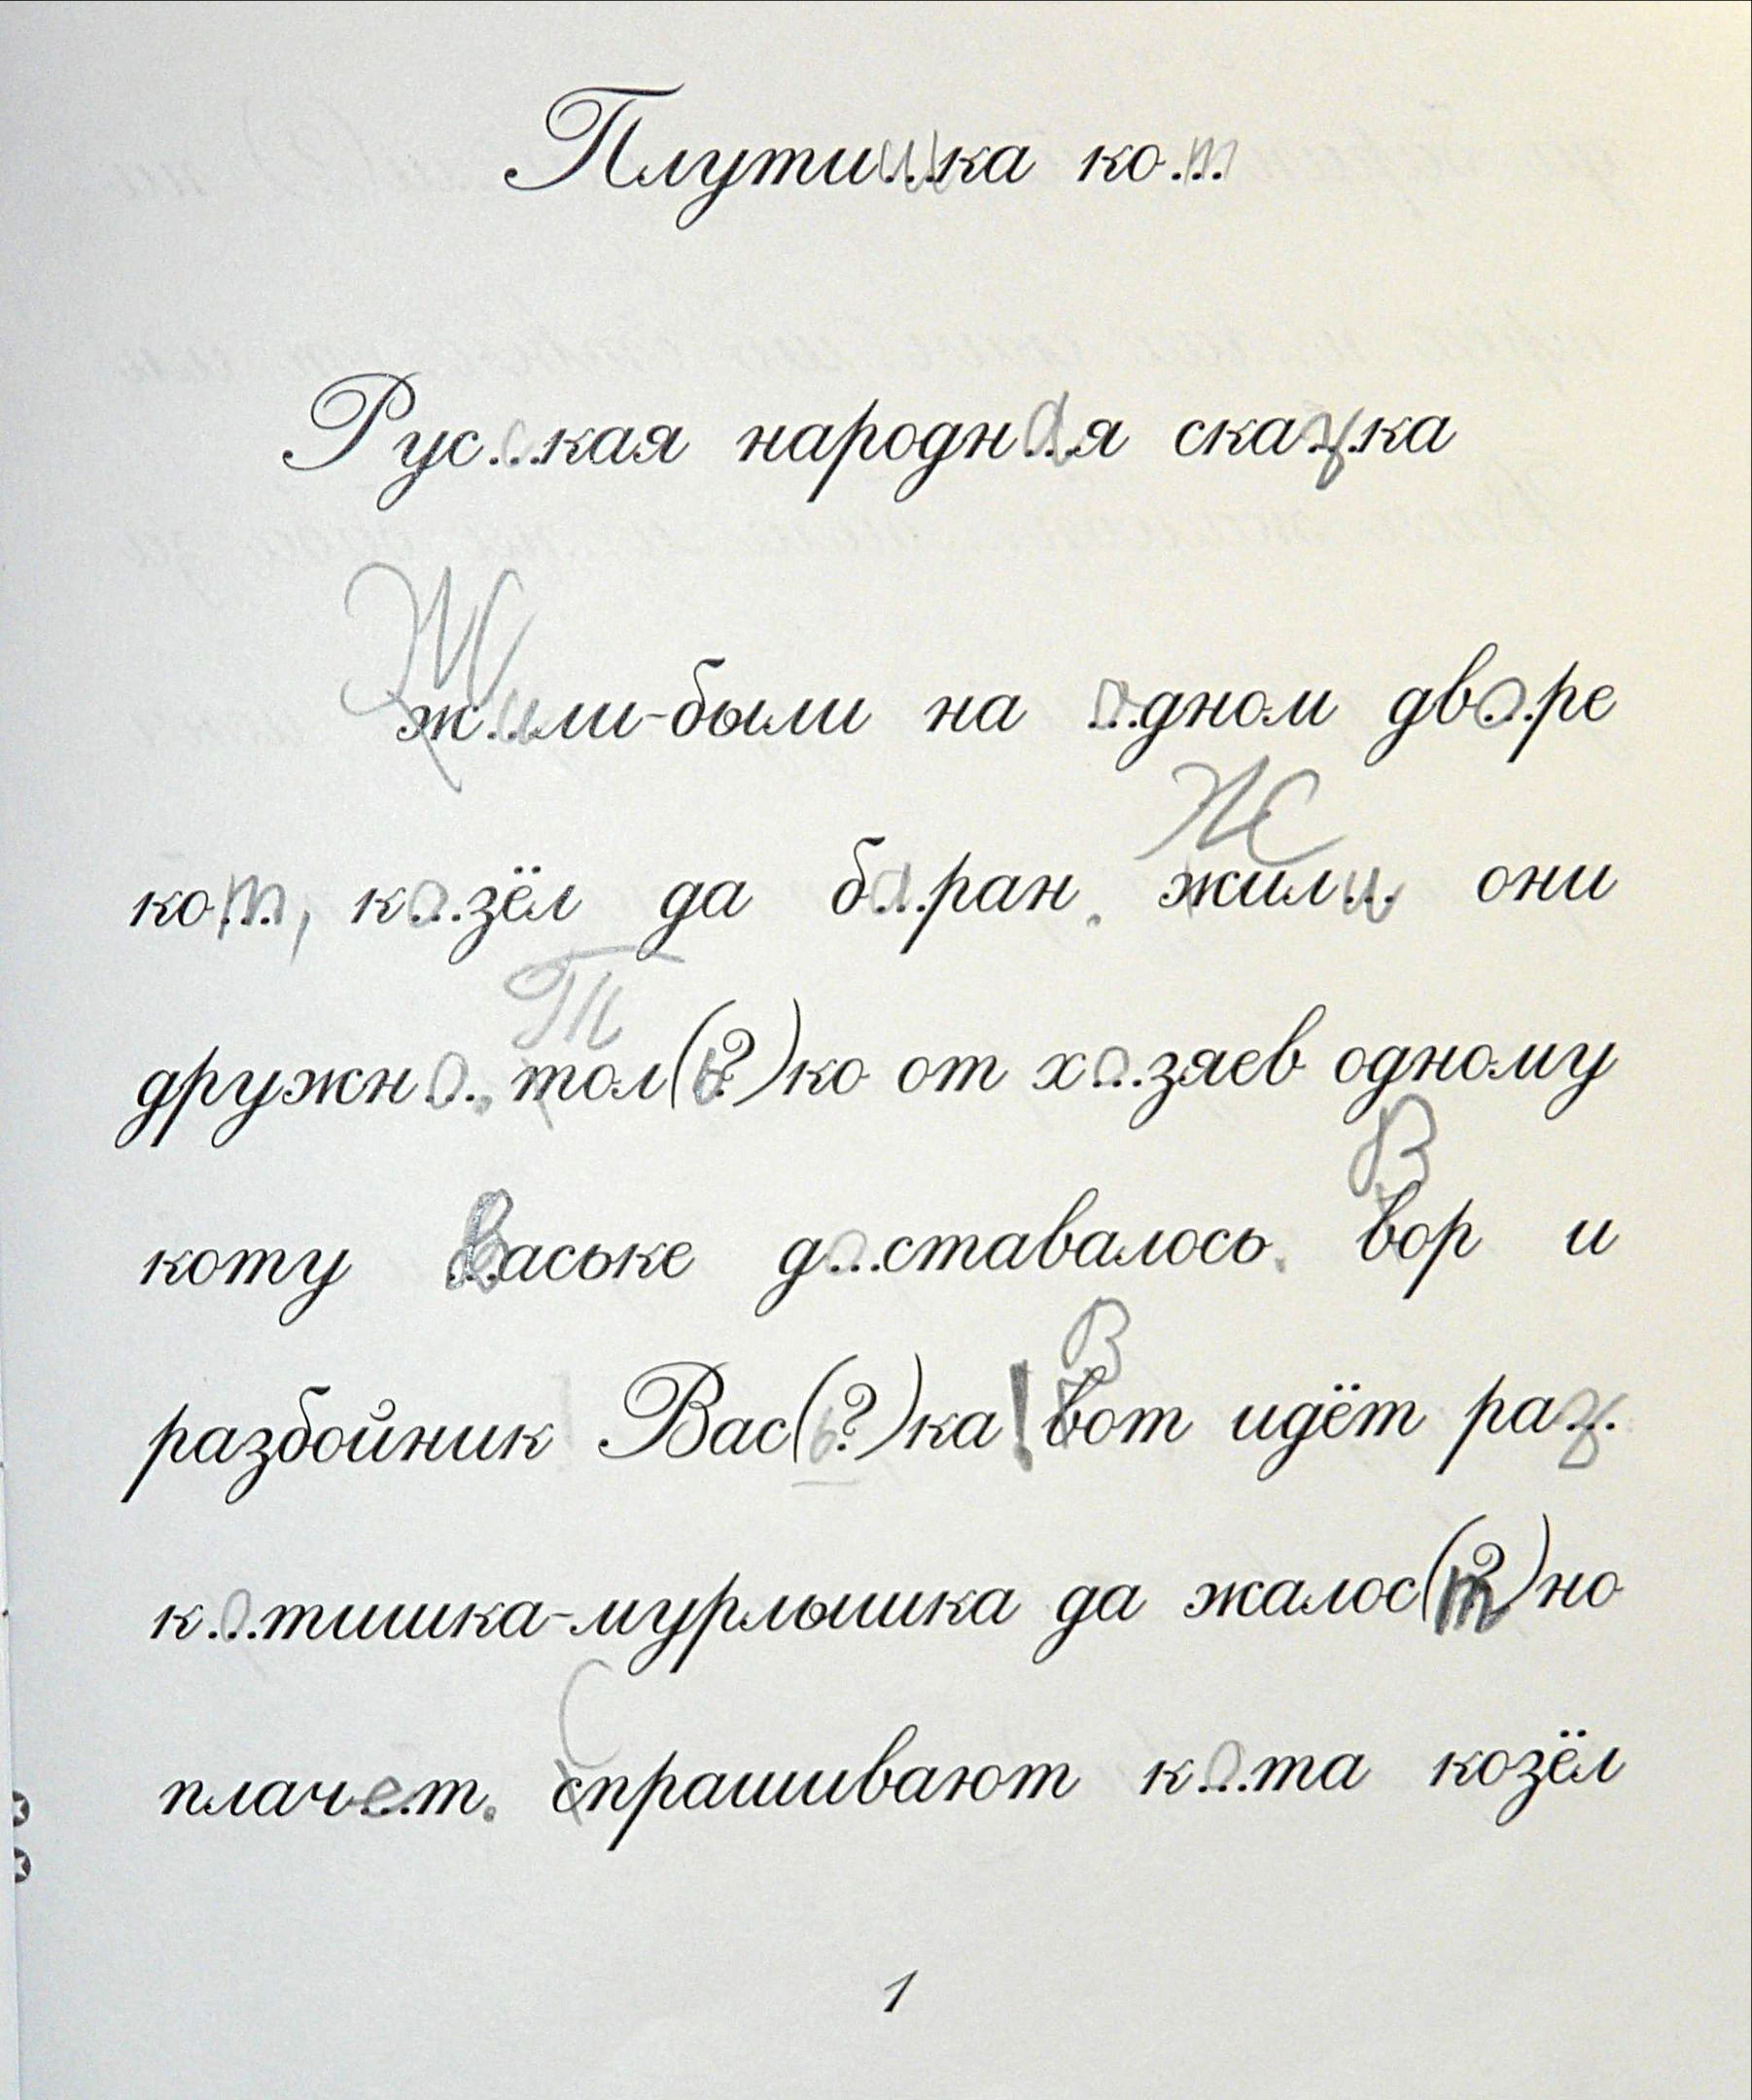 Плутишка кот
Русская народная сказка
Жили-были на одном дворе
кот, козёл да баран. Жили они
дружно. Тол(ь?)ко от хозяев одному
коту Ваське доставалось. Вор и
разбойник Вас(ь?)ка! Вот идёт раз
котишка-мурлышка да жалос(т?)но
плачет. Спрашивают кота козёл
1